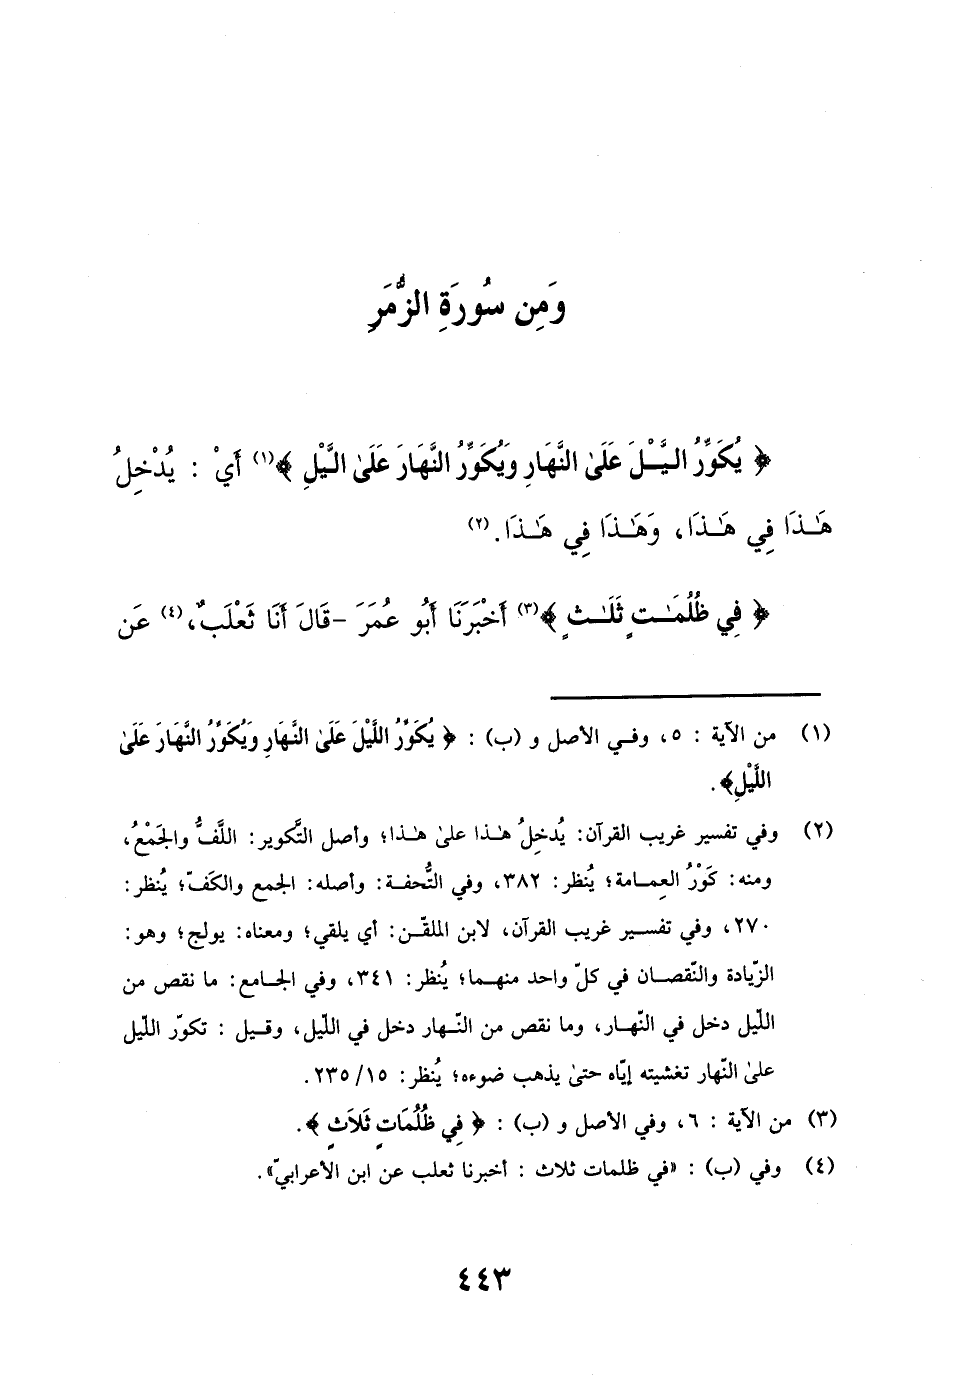 وَمِن سُورَةِ الزُّمَرِ
﴿ يُكَوِّرُ الـيَّـْـلَ عَلَىٰ النَّهَارِ وَيُكَوِّرُ النَّهَارَ عَلَىٰ الـيَّْلِ ﴾(١) أَيْ : يُدْخِلُ
هَـٰـذَا فِي هَـٰـذَا، وَهَـٰـذَا فِي هَـٰـذَا.(٢)
﴿ فِي ظُلُمَـٰـتٍ ثَلَـٰـثٍ ﴾(٣) أَخْبَرَنَا أَبُو عُمَرَ –قَالَ أَنَا ثَعْلَبٌ،(٤) عَن
(١) من الآية : ٥، وفـي الأصل و (ب) : ﴿ يُكَوِّرُ اللَّيْلَ عَلَىٰ النَّهَارِ وَيُكَوِّرُ النَّهَارَ عَلَىٰ
اللَّيْلِ﴾.
(٢) وفي تفسير غريب القرآن: يُدخِلُ هـٰـذا علىٰ هـٰـذا؛ وأصل التَّكوير: اللَّفُّ والجَمْعُ،
ومنه: كَوْرُ العِمـامة؛ يُنظر: ٣٨٢، وفي التُّحفـة: وأصله: الجمع والكَفّ؛ يُنظر:
٢٧٠، وفي تفسـير غريب القرآن، لابن الملقّـن: أي يلقي؛ ومعناه: يولج؛ وهو:
الزّيادة والنّقصـان في كلّ واحد منهـما؛ يُنظر: ٣٤١، وفي الجـامع: ما نقص من
اللّيل دخل في النّهـار، وما نقص من النّـهار دخل في اللّيل، وقـيل : تكوّر اللّيل
علىٰ النّهار تغشيته إيّاه حتىٰ يذهب ضوءه؛ يُنظر: ٢٣٥/١٥.
(٣) من الآية : ٦، وفي الأصل و (ب) : ﴿ فِي ظُلُمَاتٍ ثَلاَثٍ ﴾.
(٤) وفي (ب) : «في ظلمات ثلاث : أخبرنا ثعلب عن ابن الأعرابيّ».
٤٤٣